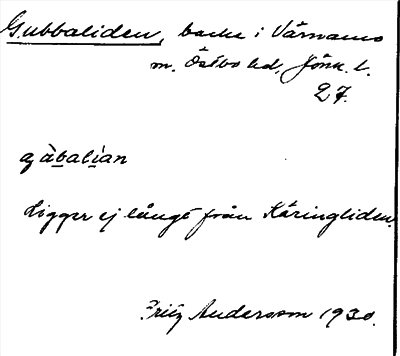 Gubbaliden, backe i Värnamo
m. Östbo hd, Jönk. l.
27.
gàbalìan
Ligger ej långt från Käringliden.
Fritz Andersson 1930.